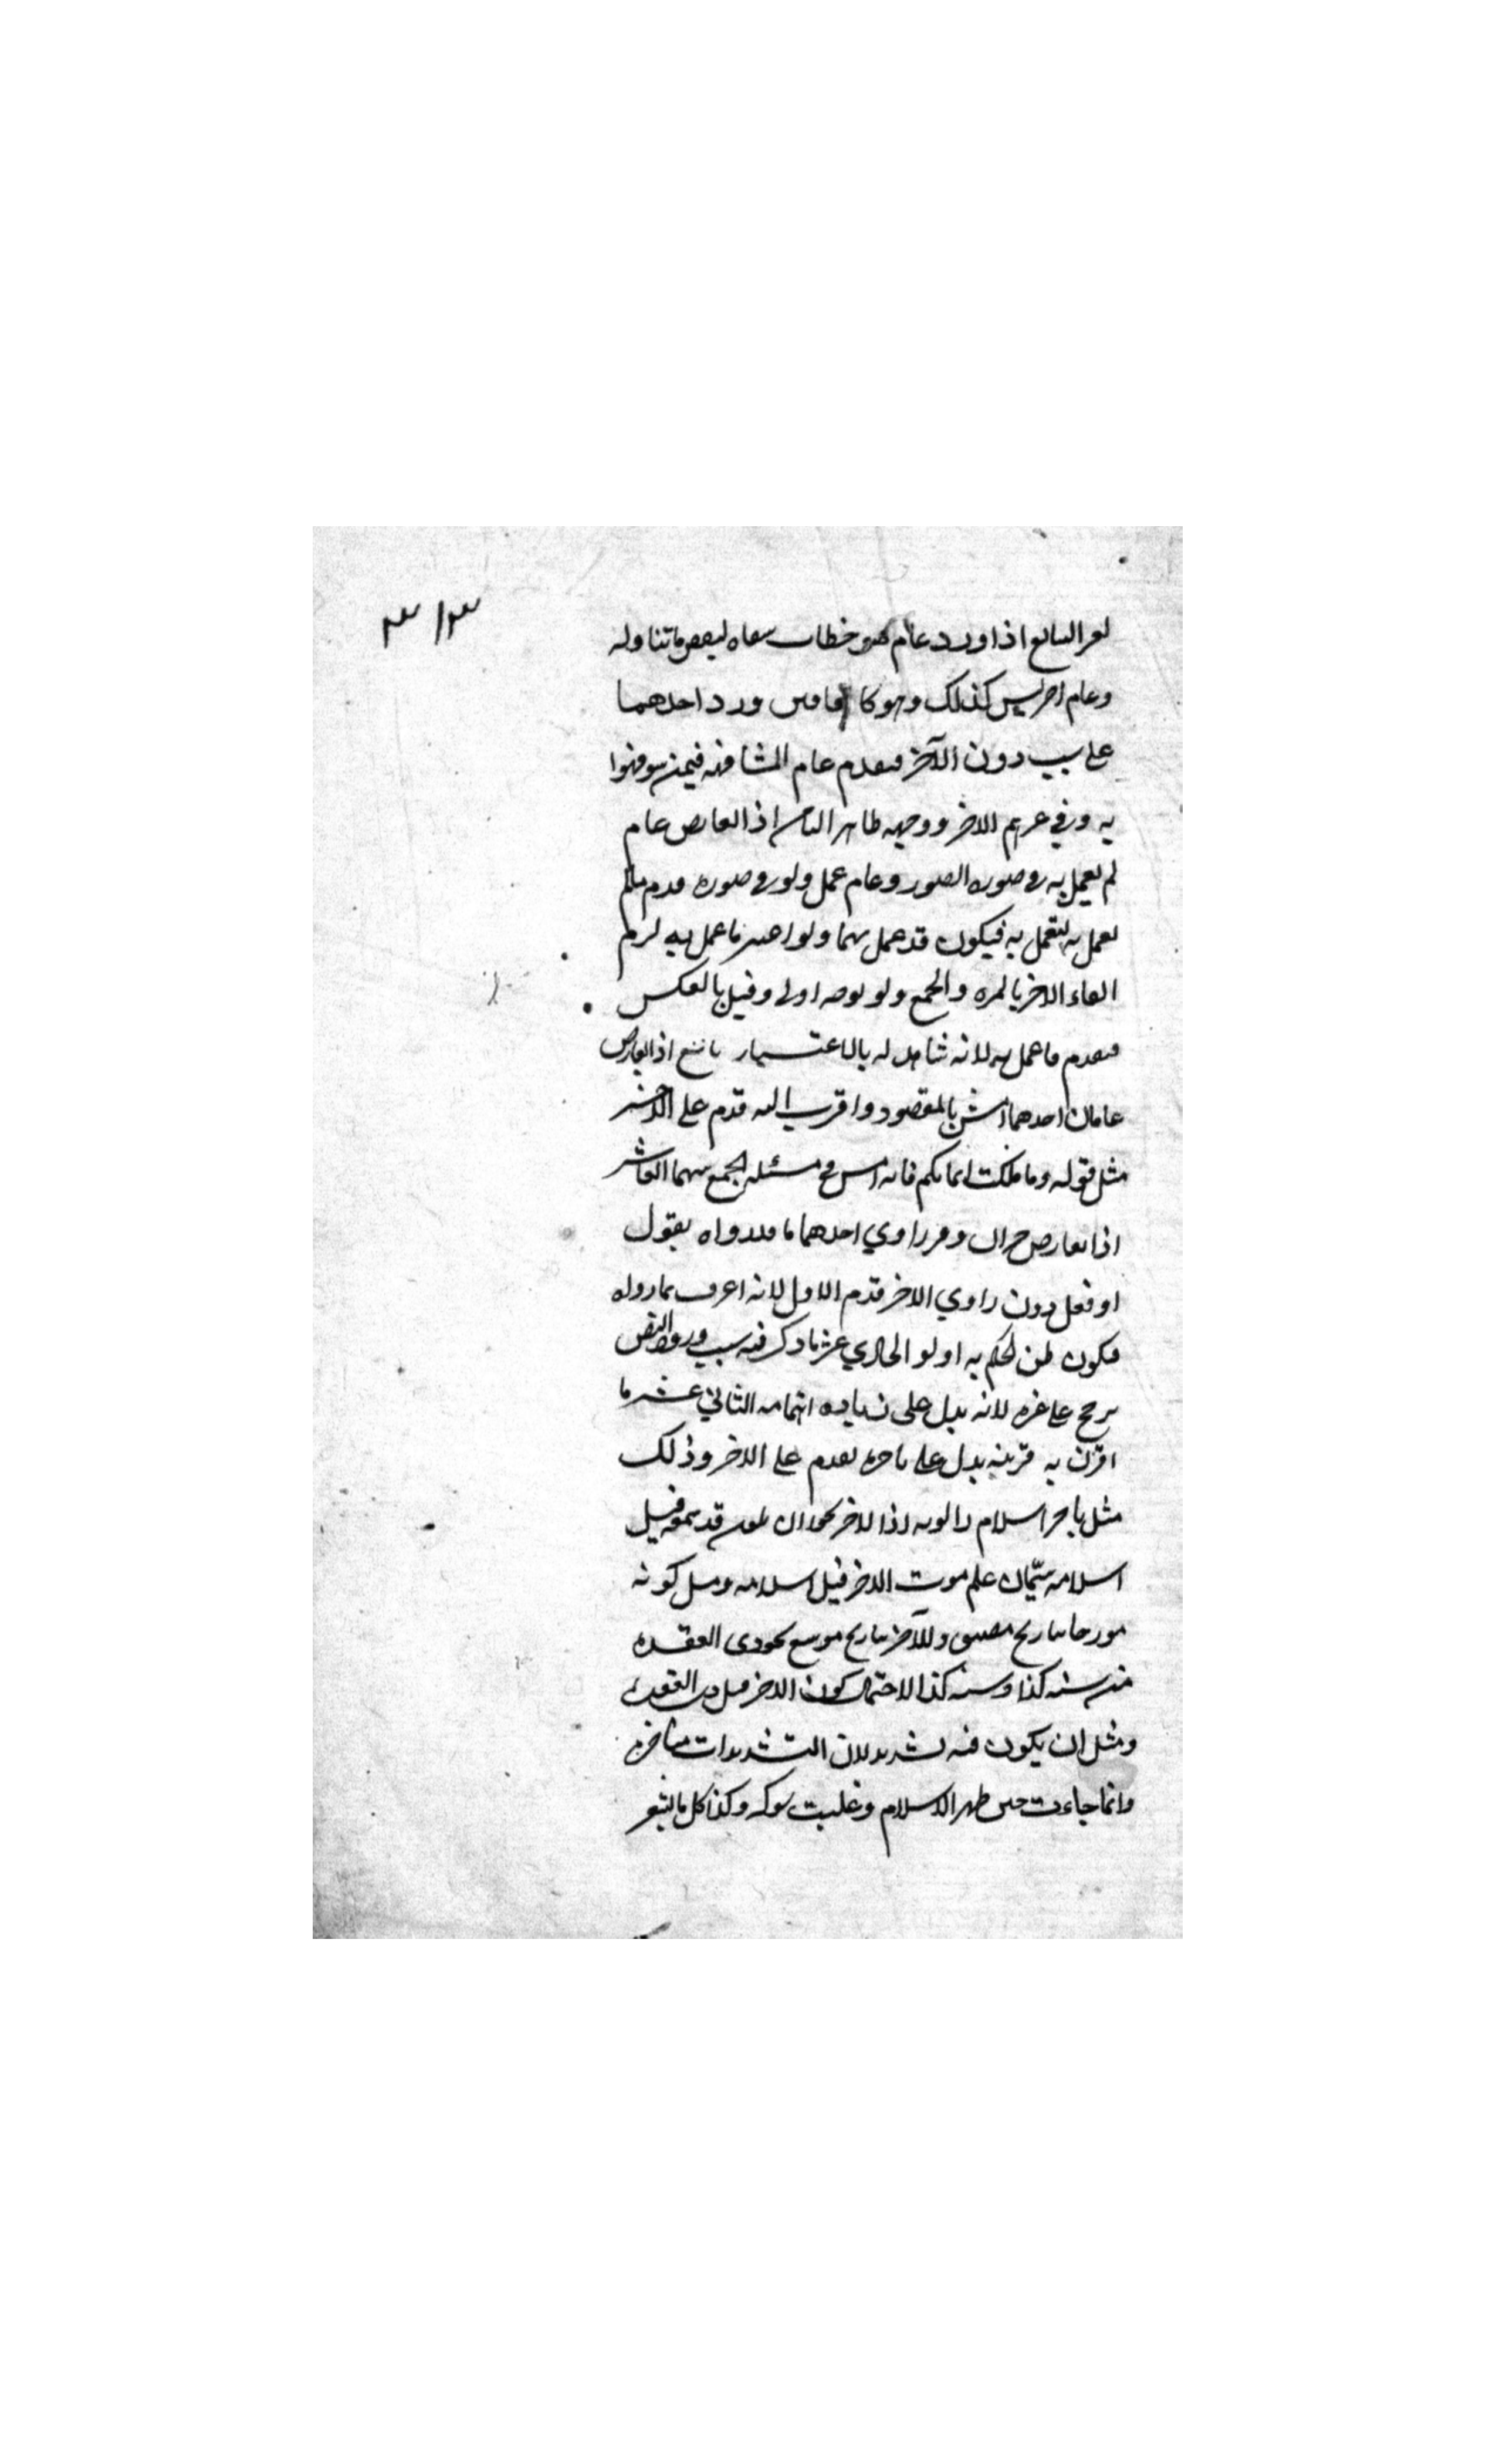 ٣١٣
لعر السابع اذا ورد عام هو خطاب شفاه لبعض ما تناوله
وعام اخر ليس كذلك وهو كا فامس ورد احدهما
على سبب دون الآخر فيقدم عام المشافهه فيمن شوفهوا
به وفي غيرهم الاخر ووجهه ظاهر الثامن اذا تعارض عام
لم يعمل به في صوره الصور وعام عمل ولو في صوره قدم مالم
يعمل به ليعمل به فيكون قد عمل بهما ولو اعتبر ما عمل به لزم
الغاء الاخر بالمره والجمع ولو بوجه اولى وقيل بالعكس
فيقدم ما عمل به لانه شاهد له بالاعتبار تاسع اذا تعارض
عامان احدهما امس بالمقصود واقرب اليه قدم على الاخر
مثل قوله وما ملكت ايمانكم فانه امس في مسئله الجمع بينهما العاشر
اذا تعارض خبران وفسر راوي احدهما ما قد رواه بقول
او فعل دون راوي الاخر قدم الاول لانه اعرف بما رواه
فيكون ظن الحكم به اولو الحادي عشر ما ذكر فيه سبب ورود النص
يرجح على غيره لانه يدل على زياده اهتمامه الثاني عشر ما
اقترن به قرينه يدل على تاخره يقدم على الاخر وذلك
مثل تاخر اسلام راويه اذ الاخر يجوز ان يكون قد سمعه قبل
اسلامه سيما ان علم موت الاخر قبل اسلامه ومثل كونه
مورخا بتاريخ مضيق وللآخر بتاريخ موسع نحو ذي القعده
من سنه كذا وسنه كذا لاحتمال كون الاخر قبل ذي القعده
ومثل ان يكون فيه تشديد لان التشديدات متاخره
وانما جاءت حين ظهر الاسلام وغلبت شوكه وكذا كل ما يشعر